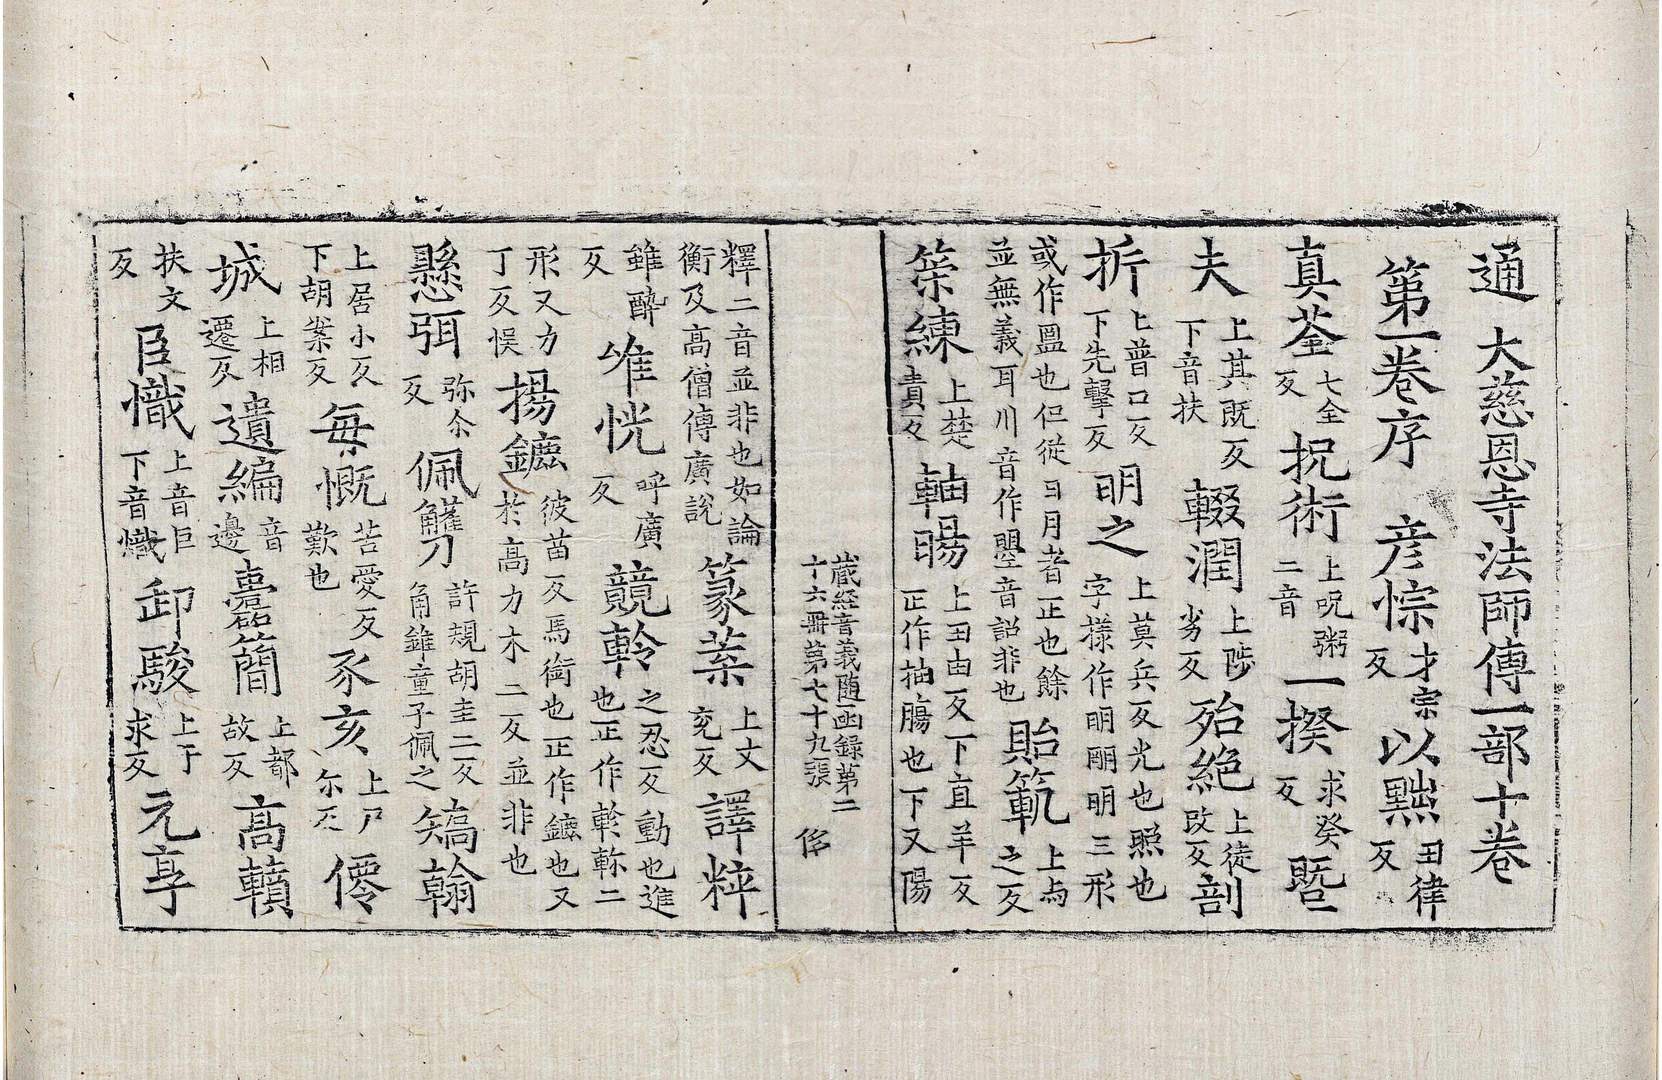 通 大慈恩寺法師傳一部十卷
第一卷序 彦悰 才宗反 以黜 丑律反
真荃 七全反 抧術 上呪粥二音 一揆 求癸反 暨
夫 上其既反下音扶 輟潤 上陟劣反 殆絶 上徒改反 剖
折 上普口反下先擊反 明之 上莫兵反光也照也字樣作明朙明三形
或作䀄也但從日月者正也餘並無義耳川音作曌音詔非也 貽範 上与之反
䇿練 上楚責反 軸暘 上丑由反下直羊反正作抽腸也下又陽
藏経音義随函録第二
十六冊第七十九張 俢
釋二音並非也如論衡及高僧傳廣説 篆素 上丈兖反 譯粹
雖醉反 惟恍 呼廣反 競軫 之忍反動也進也正作軫軫二
形又力丁反悮 揚鑣 彼苗反馬銜也正作鑣也又於高力木二反並非也
懸弭 弥尒反 佩觿 許規胡圭二反角錐童子佩之 矯翰
上居小反下胡案反 每慨 苦愛反歎也 豕亥 上尸尒反 僊
城 上相遷反 遺編 音邊 蠹簡 上都故反 髙蹟
扶文反 臣幟 上音巨下音熾 卸駿 上于求反 元亨